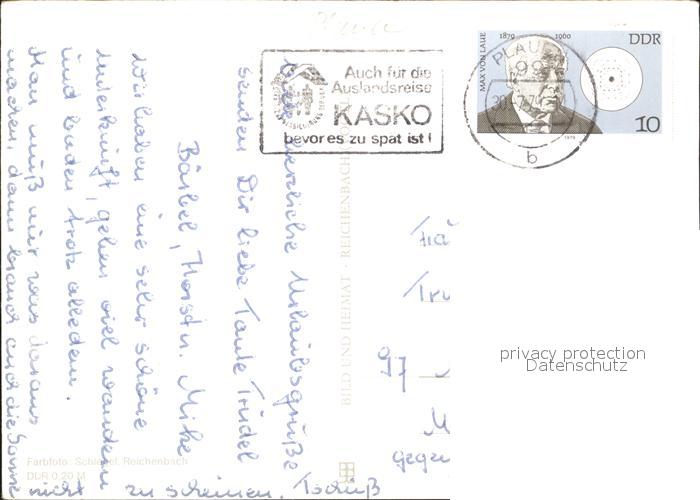 Auch für die
Auslandsreise
KASKO
bevor es zu spät ist !
MAX VON LAUE
1879 1960
DDR
10
1979
PLAUEN
b
herzliche Urlaubsgrüße
senden Dir liebe Tante Trudel
Bärbel, Horst u. Mike
Wir haben eine sehr schöne
Unterkunft, gehen viel wandern
und baden trotz alledem.
Man muß nur was daraus
machen, dann brauch auch die Sonne
nicht zu scheinen. Tschüß
BILD UND HEIMAT · REICHENBACH
Farbfoto: Schlegel, Reichenbach
DDR 0,20 M
97
privacy protection
Datenschutz